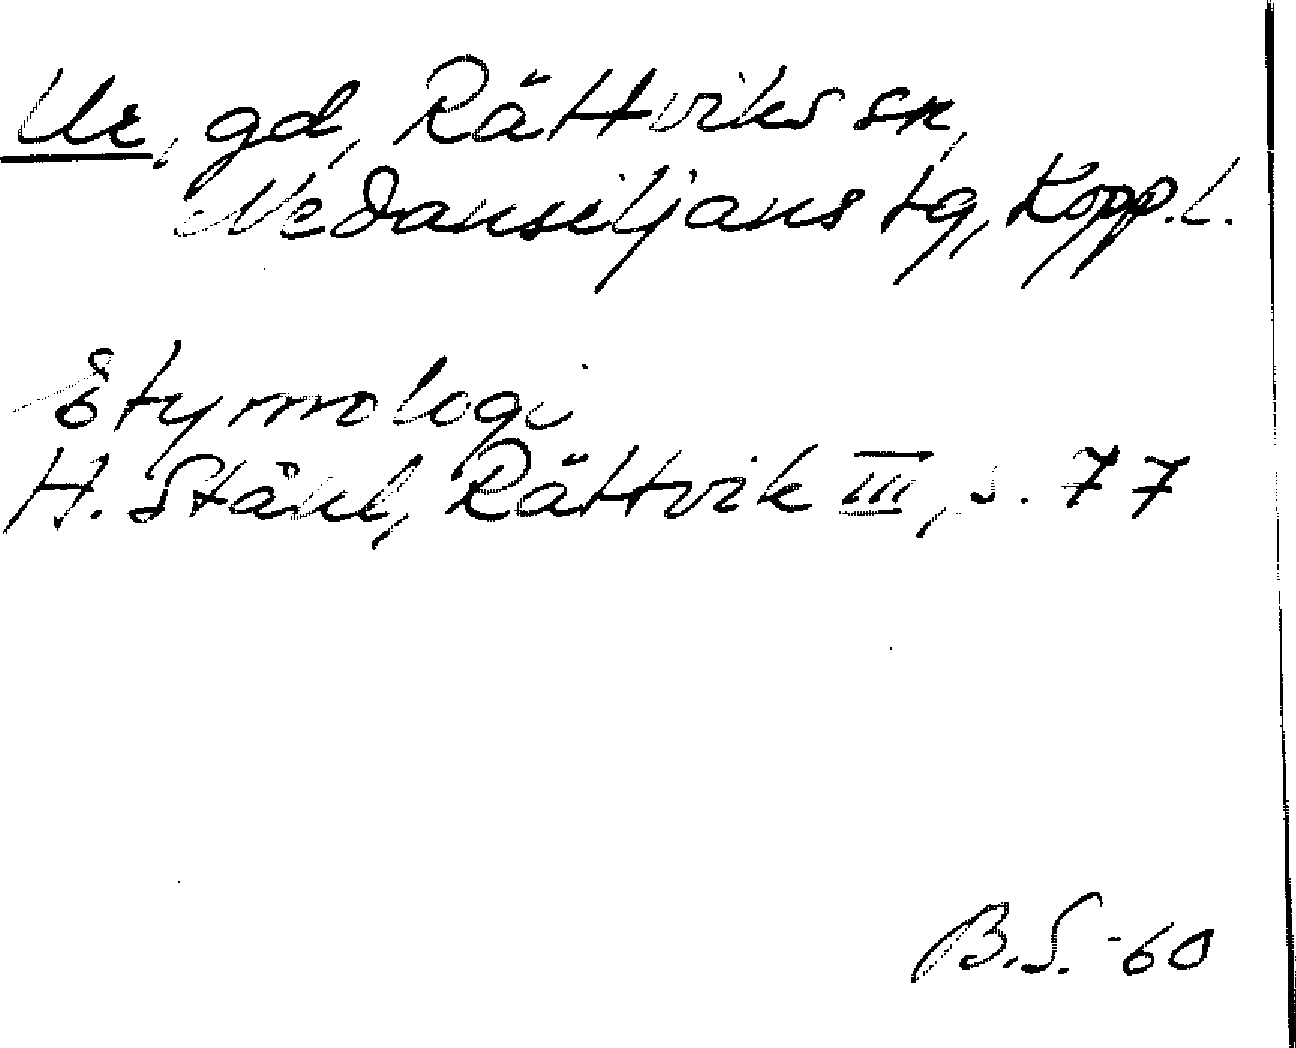 Ur, gd, Rättviks sn,
Nedansiljans tg, Kopp. l.
Etymologi
H. Ståhl, Rättvik III, s. 77
B.S. -60